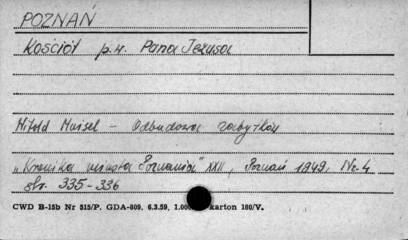 POZNAŃ
Kościół p.w. Pana Jezusa
Witold Maisel - Odbudowa zabytków
"Kronika miasta Poznania" XXII, Poznań 1949, Nr. 4
str. 335-336
CWD B-15b Nr 515/P. GDA-809. 6.3.59. 1.000 karton 180/V.